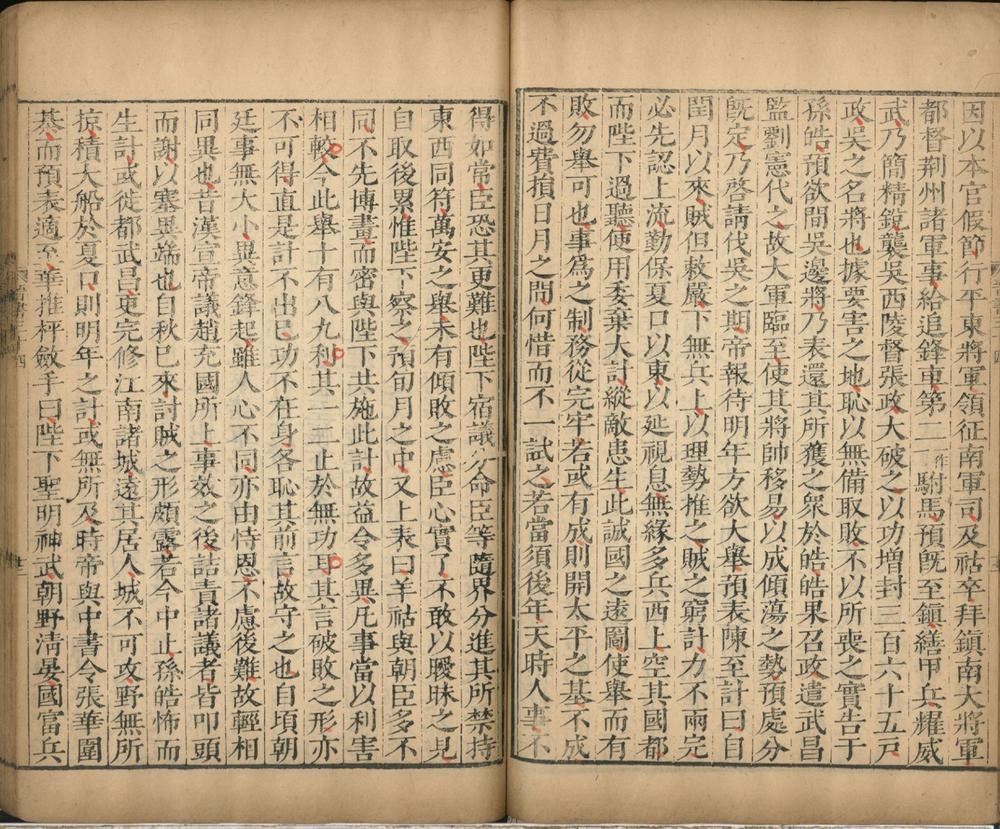 因以本官假節行平東將軍領征南軍司及祜卒拜鎮南大將軍
都督荆州諸軍事給追鋒車第二一作駙馬預旣至鎮繕甲兵耀威
武乃簡精銳襲吳西陵督張政大破之以功增封三百六十五戸
政吳之名將也據要害之地恥以無備取敗不以所喪之實告于
孫皓預欲間吳邊將乃表還其所獲之衆於皓皓果召政遣武昌
監劉憲代之故大軍臨至使其將帥移易以成傾蕩之勢預處分
旣定乃啓請伐吳之期帝報待明年方欲大舉預表陳至計曰自
閏月以來賊但敕嚴下無兵上以理勢推之賊之窮計力不兩完
必先認上流勤保夏口以東以延視息無緣多兵西上空其國都
而陛下過聽使用委棄大計縱敵患生此誠國之遠圖使舉而有
敗勿舉可也事爲之制務從完牢若或有成則開太平之基不成
不過費損日月之間何惜而不一試之若當須後年天時人事不
得如常臣恐其更難也陛下宿議分命臣等隨界分進其所禁持
東西同符萬安之舉未有傾敗之慮臣心實了不敢以曖昧之見
自取後累惟陛下察之預旬月之中又上表曰羊祜與朝臣多不
同不先博畫而密與陛下共施此計故益令多異凡事當以利害
相較今此舉十有八九利其一二止於無功耳其言破敗之形亦
不可得直是計不出已功不在身各恥其前言故守之也自頃朝
廷事無大小異意鋒起雖人心不同亦由恃恩不慮後難故輕相
同異也昔漢宣帝議趙充國所上事效之後詰責諸議者皆叩頭
而謝以塞異端也自秋已來討賊之形頗露若今中止孫皓怖而
生計或徙都武昌更完修江南諸城遠其居人城不可攻野無所
掠積大船於夏口則明年之計或無所及時帝與中書令張華圍
棊而預表適至華推枰斂手曰陛下聖明神武朝野淸晏國富兵